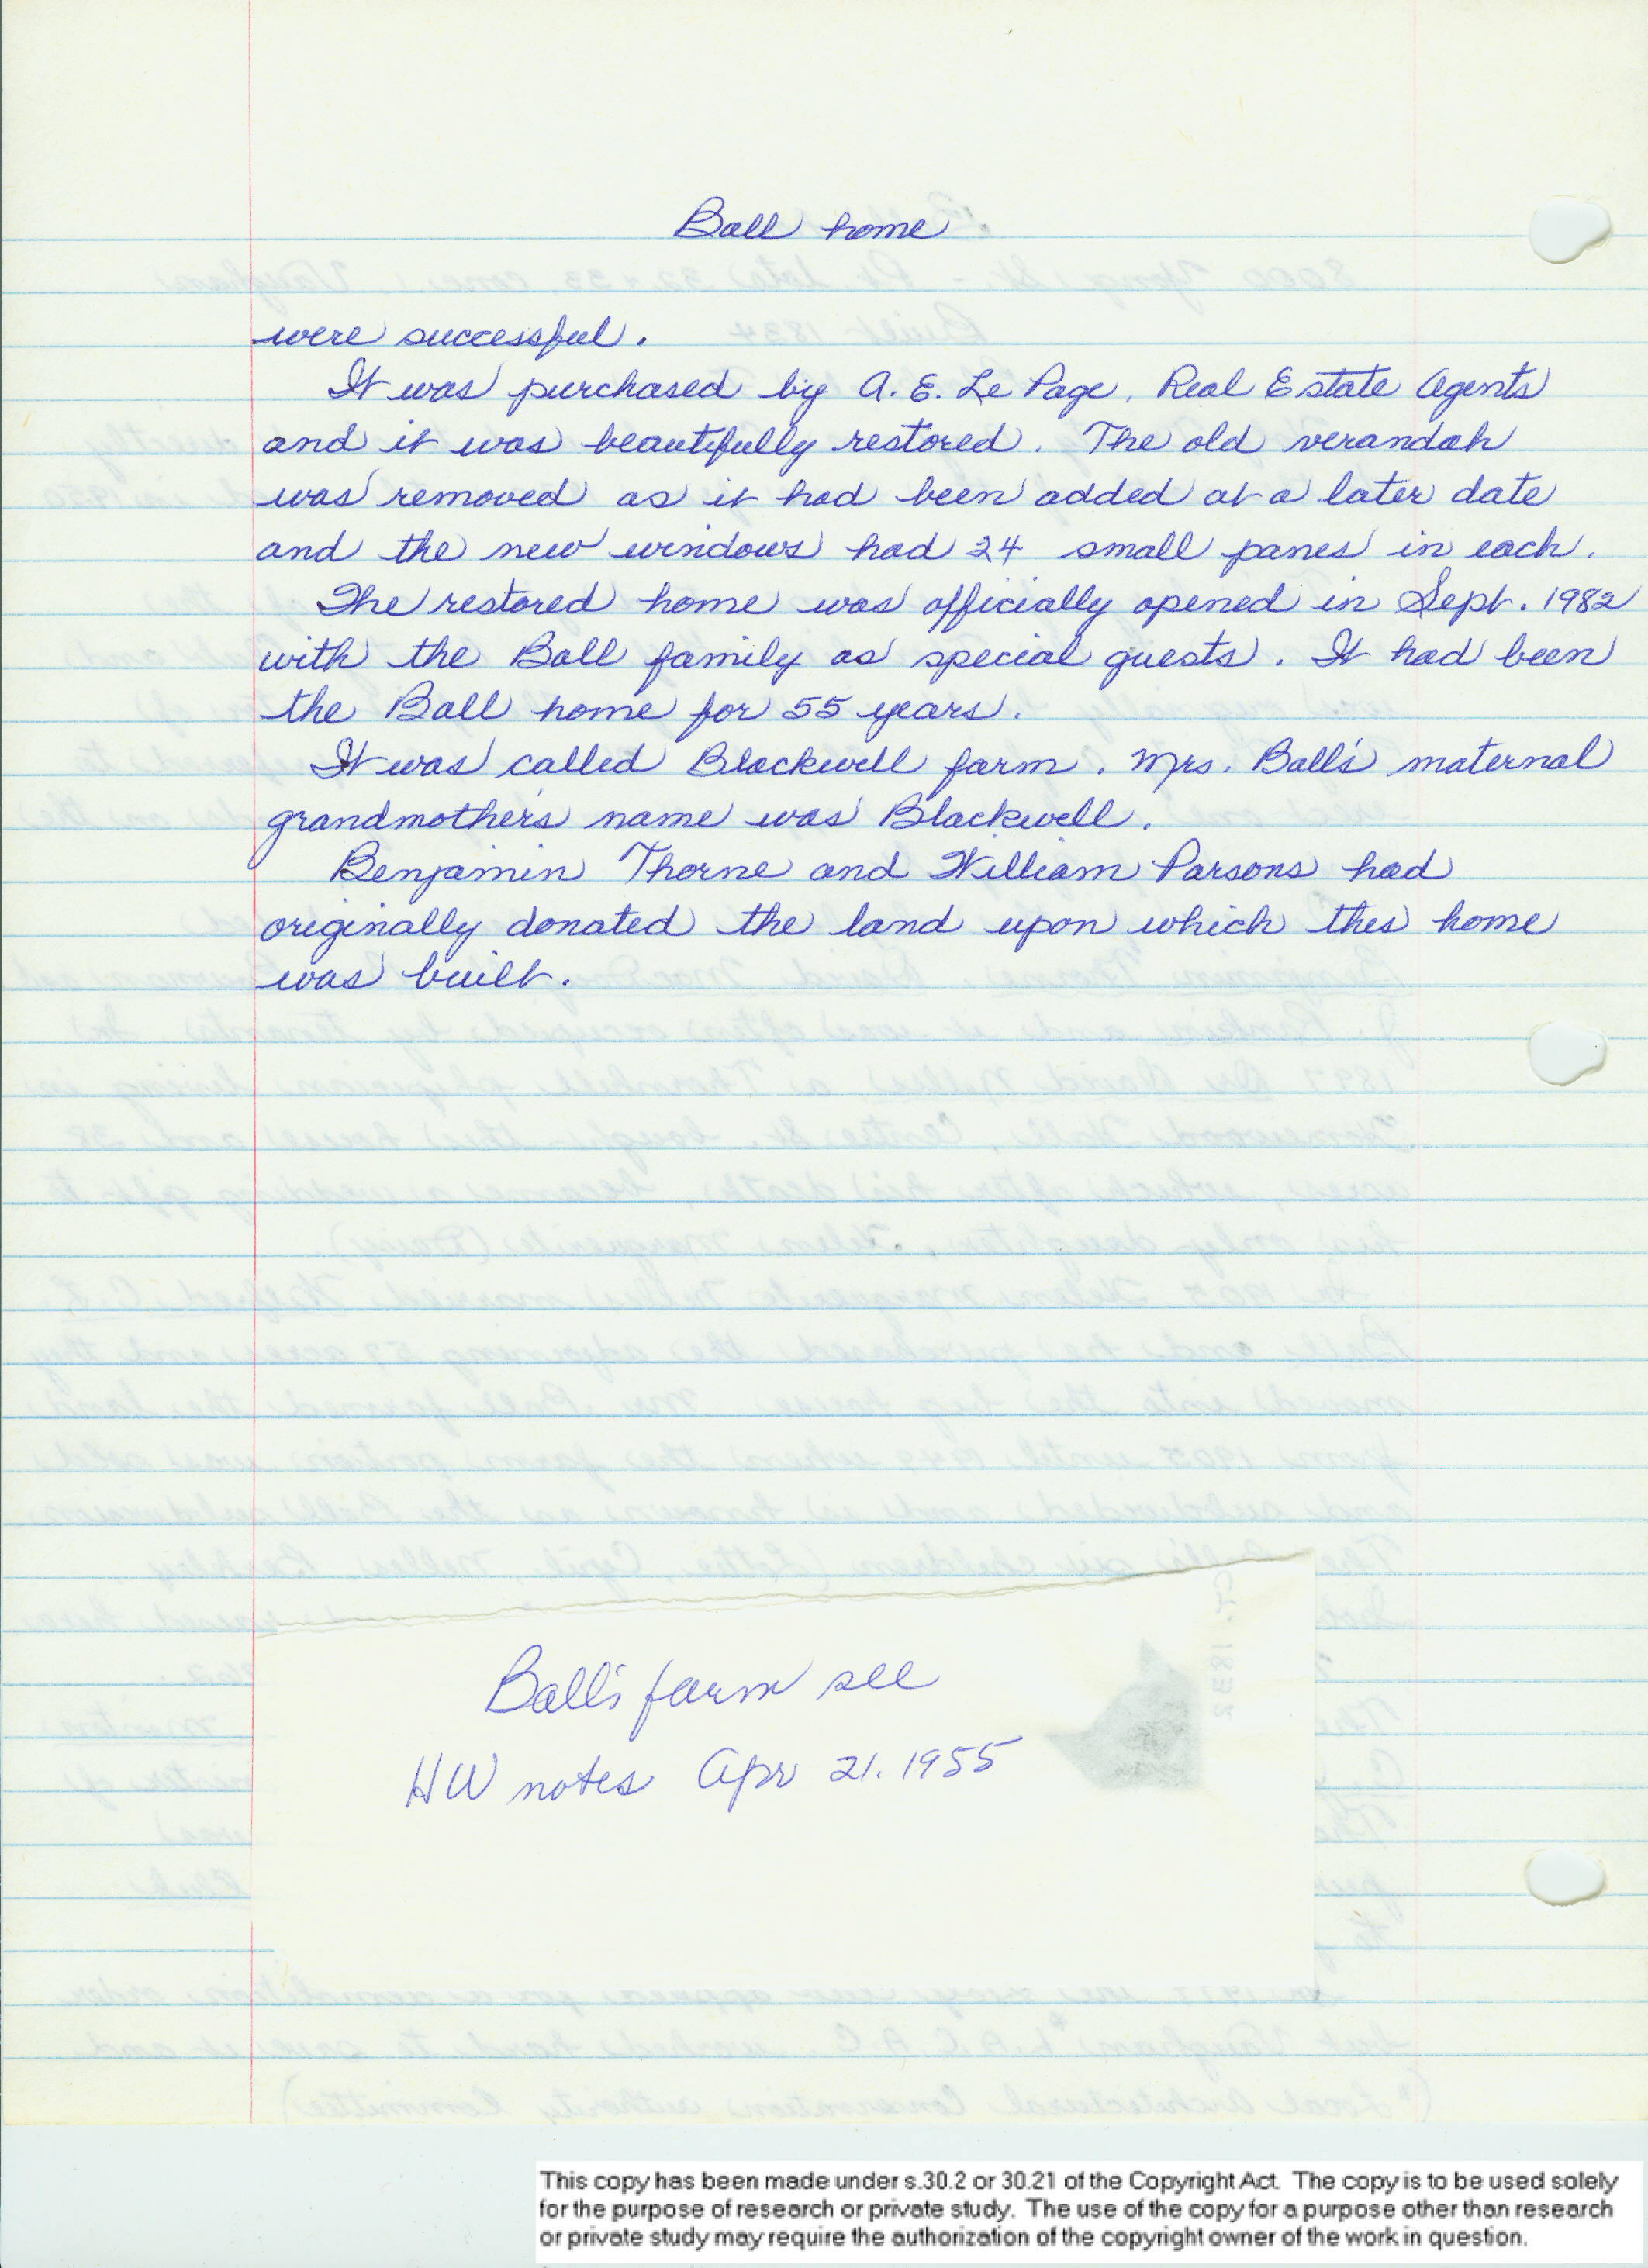 Ball home
were successful.
It was purchased by A. E. Le Page, Real Estate Agents
and it was beautifully restored. The old verandah
was removed as it had been added at a later date
and the new windows had 24 small panes in each.
The restored home was officially opened in Sept. 1982
with the Ball family as special guests. It had been
the Ball home for 55 years.
It was called Blackwell farm. Mrs. Ball's maternal
grandmother's name was Blackwell.
Benjamin Thorne and William Parsons had
originally donated the land upon which this home
was built.
Ball's farm see
HW notes Apr 21. 1955
This copy has been made under s.30.2 or 30.21 of the Copyright Act. The copy is to be used solely
for the purpose of research or private study. The use of the copy for a purpose other than research
or private study may require the authorization of the copyright owner of the work in question.